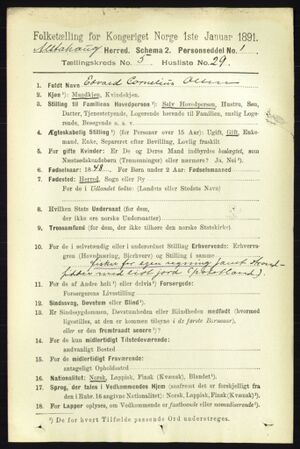 Folketælling for Kongeriget Norge 1ste Januar 1891.
Alstahoug Herred. Schema 2. Personseddel No. 1
Tællingskreds No. 5 Husliste No. 29.
1. Fuldt Navn Edvard Cornelius Olsen
2. Kjøn: Mandkjøn, Kvindekjøn.
3. Stilling til Familiens Hovedperson: Selv Hovedperson, Hustru, Søn,
Datter, Tjenestetyende, Logerende hørende til Familien, særlig Logerende,
Besøgende o. s. v.
4. Ægteskabelig Stilling (for Personer over 15 Aar): Ugift, Gift, Enkemand,
Enke, Separeret efter Bevilling, Lovlig fraskilt
5. For gifte Kvinder: Er De og Deres Mand indbyrdes beslægtet, som
Næstsødskendebørn (Tremænninger) eller nærmere? Ja, Nei
6. Fødselsaar: 1848. For Børn under 2 Aar: Fødselsmaaned
7. Fødested: Herred, Sogn eller By
For de i Udlandet fødte: (Landets eller Stedets Navn)
8. Hvilken Stats Undersaat (for dem,
der ikke ere norske Undersaatter)
9. Trossamfund (for dem, der ikke tilhøre den norske Statskirke)
10. For de i selvstændig eller i underordnet Stilling Erhvervende: Erhvervsgren
(Hovednæring, Bierhverv) og Stilling i samme
fisker for egen regning samt
med lidt jord
11. For de af Andre helt eller delvis Forsørgede:
Forsørgerens Livsstilling
12. Sindssvag, Døvstum eller Blind
13. Er Sindssygdommen, Døvstumheden eller Blindheden medfødt (hvormed
ligestilles, at den er kommen tilsyne i de 4 første Barneaar),
eller er den fremtraadt senere?
14. For de kun midlertidigt Tilstedeværende:
andvanligt Bosted
15. For de midlertidigt Fraværende:
antageligt Opholdssted
16. Nationalitet: Norsk, Lappisk, Finsk (Kvænsk), Blandet
17. Sprog, der tales i Vedkommendes Hjem (saafremt det er forskjelligt fra
den i Rubr. 16 angivne Nationalitet): Norsk, Lappisk, Finsk (Kvænsk).
18. For Lapper oplyses, om Vedkommende er fastboende eller nomadiserende
De for hvert Tilfælde passende Ord understreges.